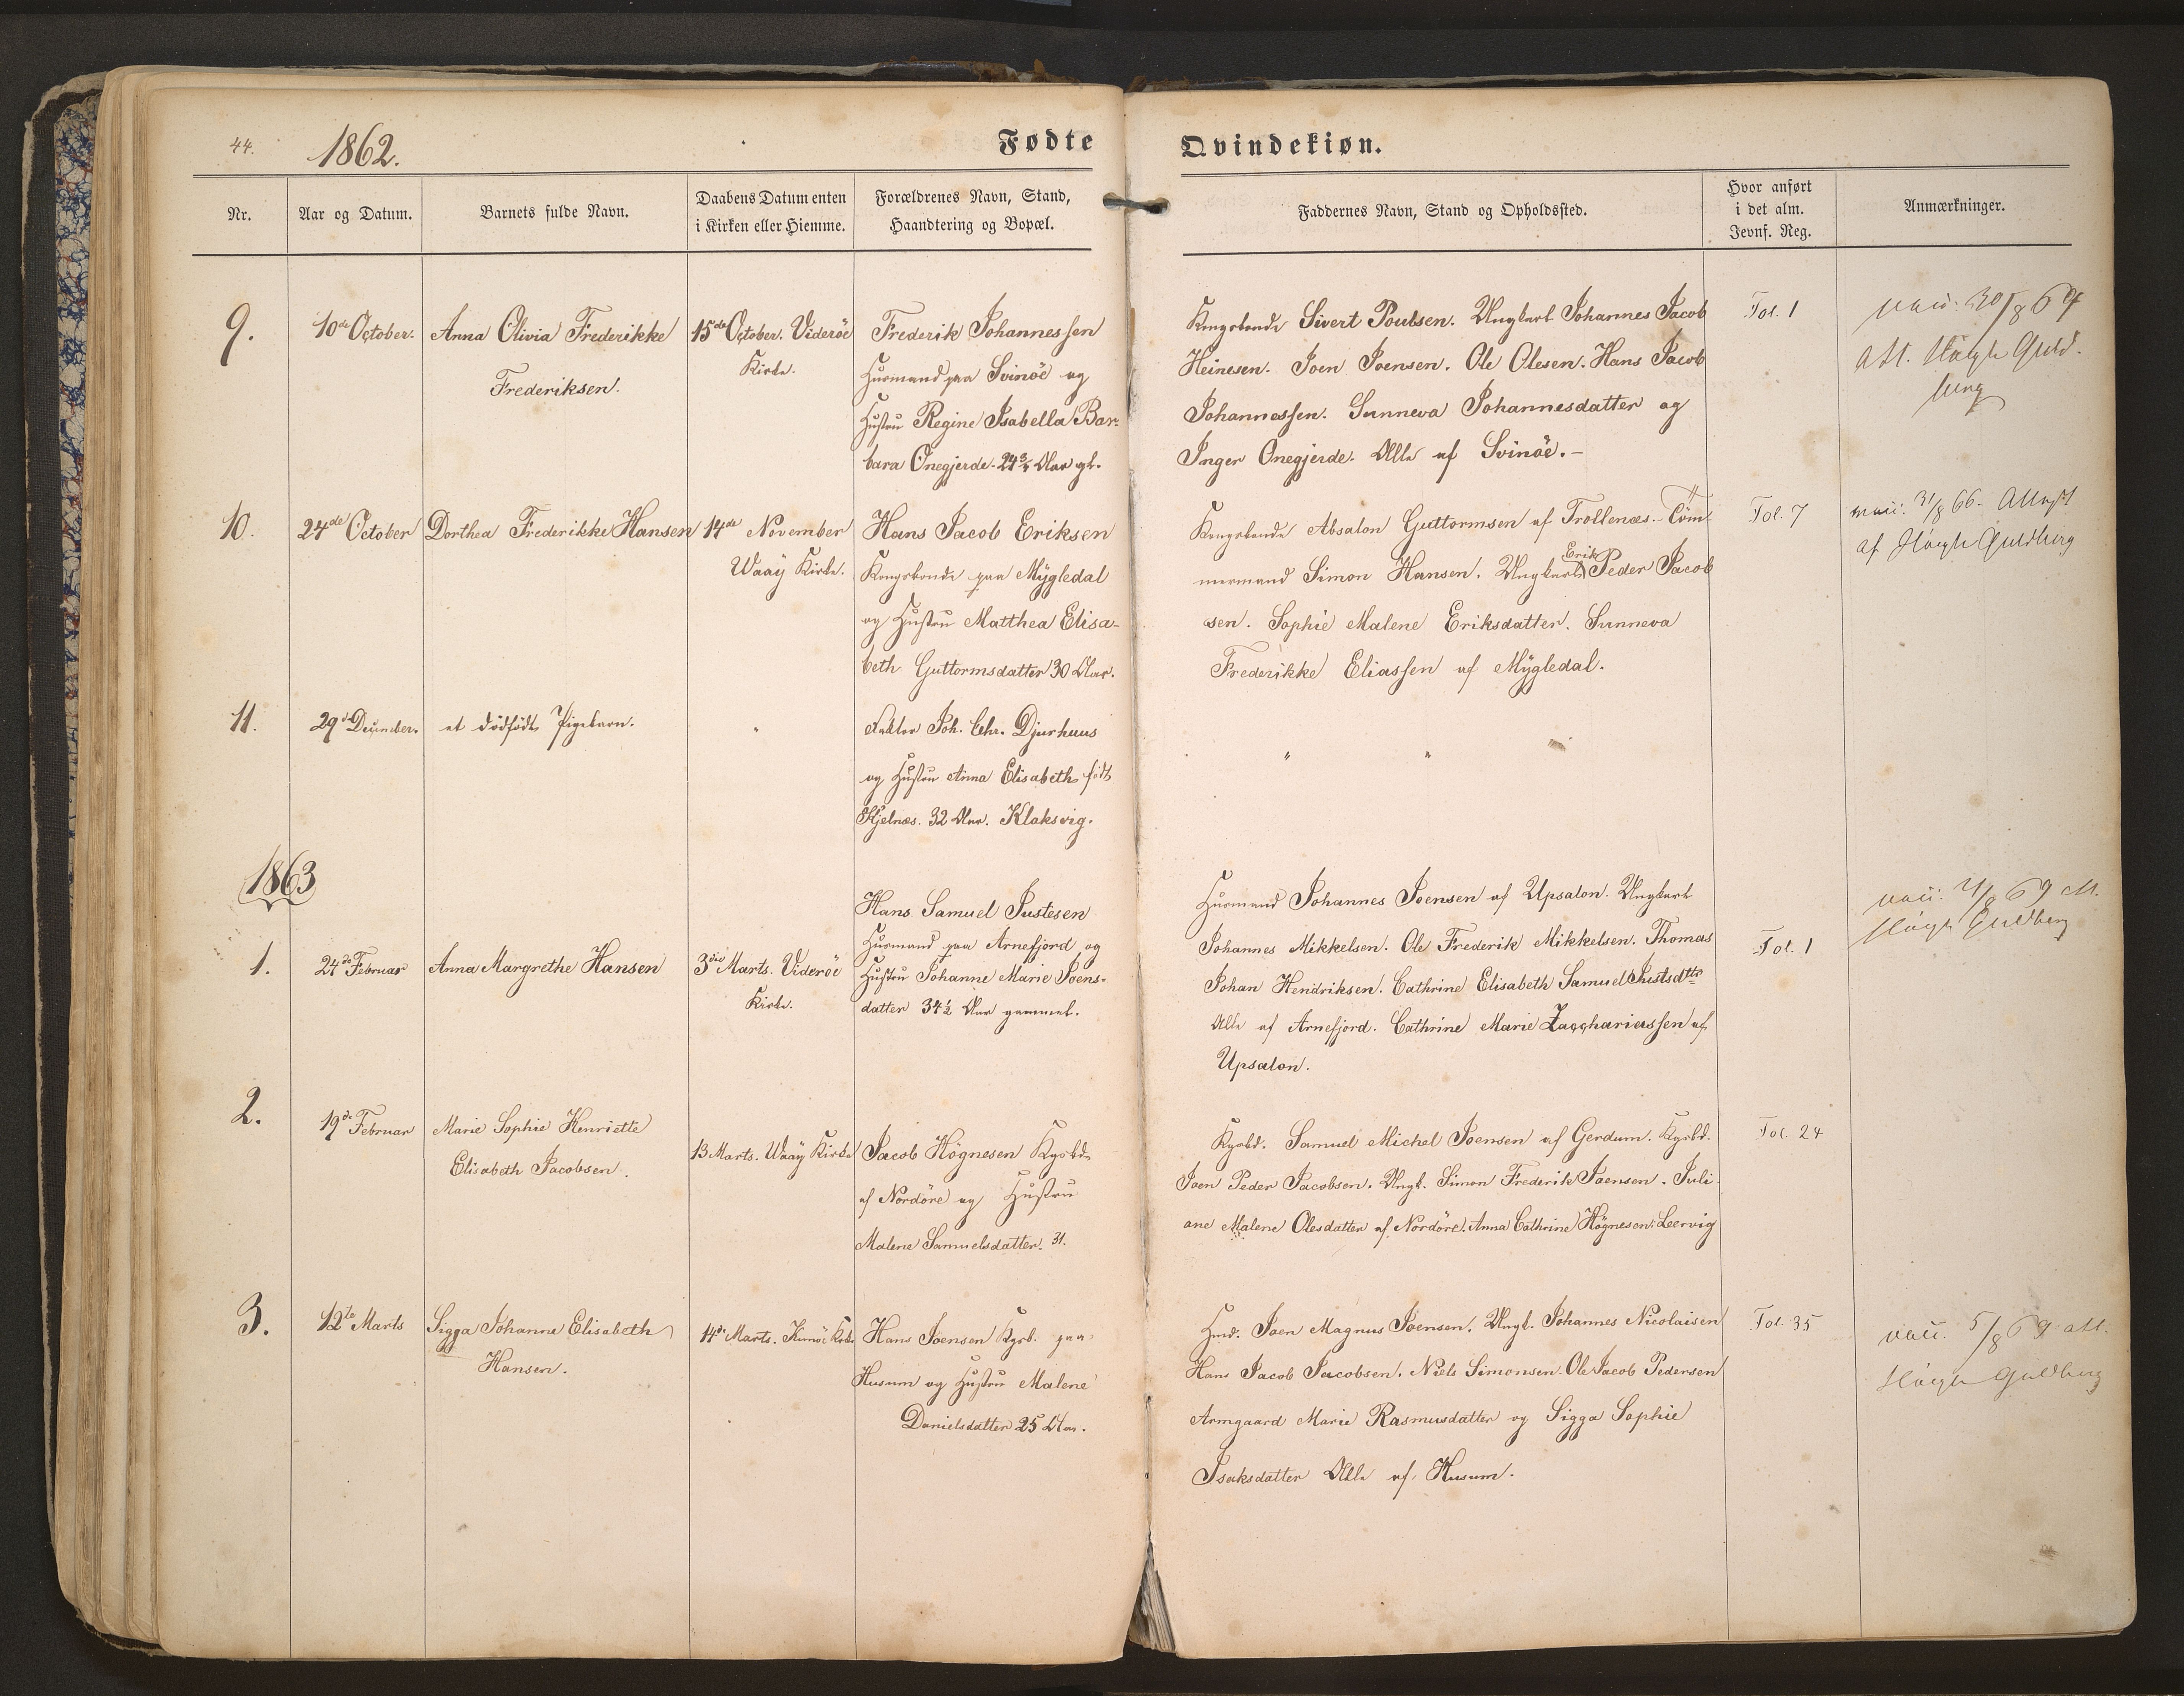 44.
1862.
Fødte
Qvindekiøn.
Nr.
Aar og Datum.
Barnets fulde Navn.
Daabens Datum enten
i Kirken eller Hiemme.
Forældrenes Navn, Stand,
Haandtering og Bopæl.
Faddernes Navn, Stand og Opholdssted.
Hvor anført
i det alm.
Jevnf. Reg.
Anmærkninger.
9.
10de October.
Anna Olivia Frederikke
Frederiksen.
15de October. Videröe
Kirke.
Frederik Johannessen
Huusmand paa Svinöe og
Hustru Regine Isabella Bar-
bara Önegjerde. 24 Aar gl.
Kongsbonde Sivert Poulsen. Ungkarl Johannes Jacob
Heinesen. Joen Joensen. Ole Olesen. Hans Jacob
Johannessen. Sunneva Johannesdatter og
Inger Önegjerde. Alle af Svinöe.-
Fol. 1
vacc: 30/8 64
att. Høegh Guld-
berg
10.
24de October
Dorthea Frederikke Hansen
14de November
Waaij Kirke.
Hans Jacob Eriksen
Kongsbonde paa Mÿgledal
og Hustru Matthea Elisa-
beth Guttormsdatter 30 Aar.
Kongsbonde Absalon Guttormsen af Trollenæs. Töm-
mermand Simon Hansen. Ungkarl Erik Peder Jacob
sen. Sophie Malene Eriksdatter. Sunneva
Frederikke Eliassen af Mÿgledal.
Fol. 7
vacc: 31/8 66. Attest
af Høegh Guldberg
11.
29de December.
et dödfödt Pigebarn.
"
Faktor Joh. Chr. Djurhuus
og Hustru Anna Elisabeth födt
Kjelnæs. 32 Aar. Klaksvig.
" "
1863
1.
24de Februar
Anna Margrethe Hansen
3die Marts. Videröe
Kirke.
Hans Samuel Justesen
Huusmand paa Arnefjord og
Hustru Johanne Marie Joens-
datter 34½ Aar gammel.
Huusmand Johannes Joensen af Upsalon. Ungkarl
Johannes Mikkelsen. Ole Frederik Mikkelsen. Thomas
Johan Hendriksen. Cathrine Elisabeth Samuel Justsdtr
Alle af Arnefjord. Cathrine Marie Zacchariassen af
Upsalon.
Fol. 1
vacc: /8 69 att.
Høegh Guldberg
2.
19de Februar
Marie Sophie Henriette
Elisabeth Jacobsen.
13 Marts. Waaij Kirke
Jacob Högnesen Kgsbd.
af Nordöre og Hustru
Malene Samuelsdatter. 31.
Kgsbd. Samuel Michel Joensen af Gerdum. Kgsbd.
Joen Peder Jacobsen. Ungk. Simon Frederik Joensen. Juli-
ane Malene Olesdatter af Nordöre. Anna Cathrine Högnesen. Leervig
Fol. 24
3.
12te Marts
Sigga Johanne Elisabeth
Hansen.
14de Marts. Kunöe Kirke
Hans Joensen Kgsb. paa
Husum og Hustru Malene
Danielsdatter 25 Aar.
Hmd. Joen Magnus Joensen. Ungk. Johannes Nicolaisen
Hans Jacob Jacobsen. Niels Simonsen. Ole Jacob Pedersen
Armgaard Marie Rasmusdatter og Sigga Sophie
Isaksdatter Alle af Husum.
Fol. 35
vacc. 5/8 69 att.
Høegh Guldberg